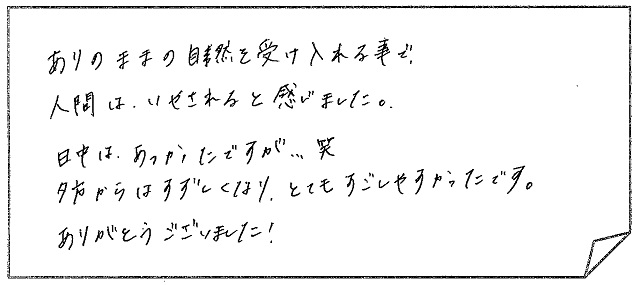 ありのままの自然を受け入れる事で、
人間は、いやされると感じました。
日中は、あつかったですが… 笑
夕方からはすずしくなり、とてもすごしやすかったです。
ありがとうございました！